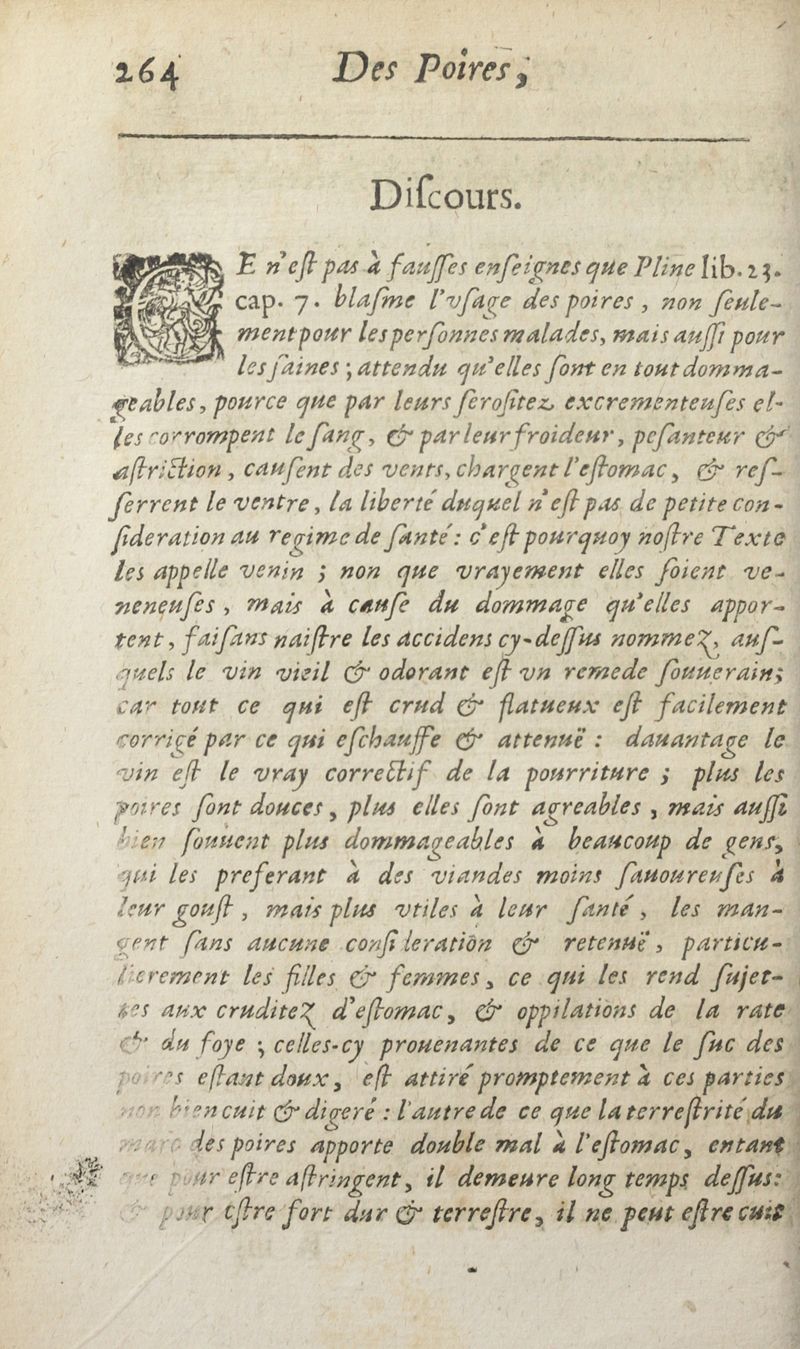 264 Des Poires,
Diſcours.
CE n'eſt pas à fauſſes enſeignes que Pline lib. 23.
cap. 7. blaſme l'vſage des poires, non ſeule-
ment pour les perſonnes malades, mais auſſi pour
les ſaines ; attendu qu'elles ſont en tout domma-
geables, pource que par leurs ſeroſitez excrementeuſes el-
les corrompent le ſang, & par leur froideur, peſanteur &
aſtriction, cauſent des vents, chargent l'eſtomac, & reſ-
ſerrent le ventre, la liberté duquel n'eſt pas de petite con-
ſideration au regime de ſanté : c'eſt pourquoy noſtre Texte
les appelle venin ; non que vrayement elles ſoient ve-
neneuſes, mais à cauſe du dommage qu'elles appor-
tent, faiſans naiſtre les accidens cy-deſſus nommez, auſ-
quels le vin vieil & odorant eſt vn remede ſouuerain;
car tout ce qui eſt crud & flatueux eſt facilement
corrigé par ce qui eſchauffe & attenuë : dauantage le
vin eſt le vray correctif de la pourriture ; plus les
poires ſont douces, plus elles ſont agreables, mais auſſi
bien ſouuent plus dommageables à beaucoup de gens,
qui les preferant à des viandes moins ſauoureuſes à
leur gouſt, mais plus vtiles à leur ſanté, les man-
gent ſans aucune conſideration & retenuë, particu-
lierement les filles & femmes, ce qui les rend ſujet-
tes aux cruditez d'eſtomac, & oppilations de la rate
& du foye ; celles-cy prouenantes de ce que le ſuc des
poires eſtant doux, eſt attiré promptement à ces parties
non bien cuit & digeré : l'autre de ce que la terreſtrité du
marc des poires apporte double mal à l'eſtomac, entant
que pour eſtre aſtringent, il demeure long temps deſſus:
& pour eſtre fort dur & terreſtre, il ne peut eſtre cuit